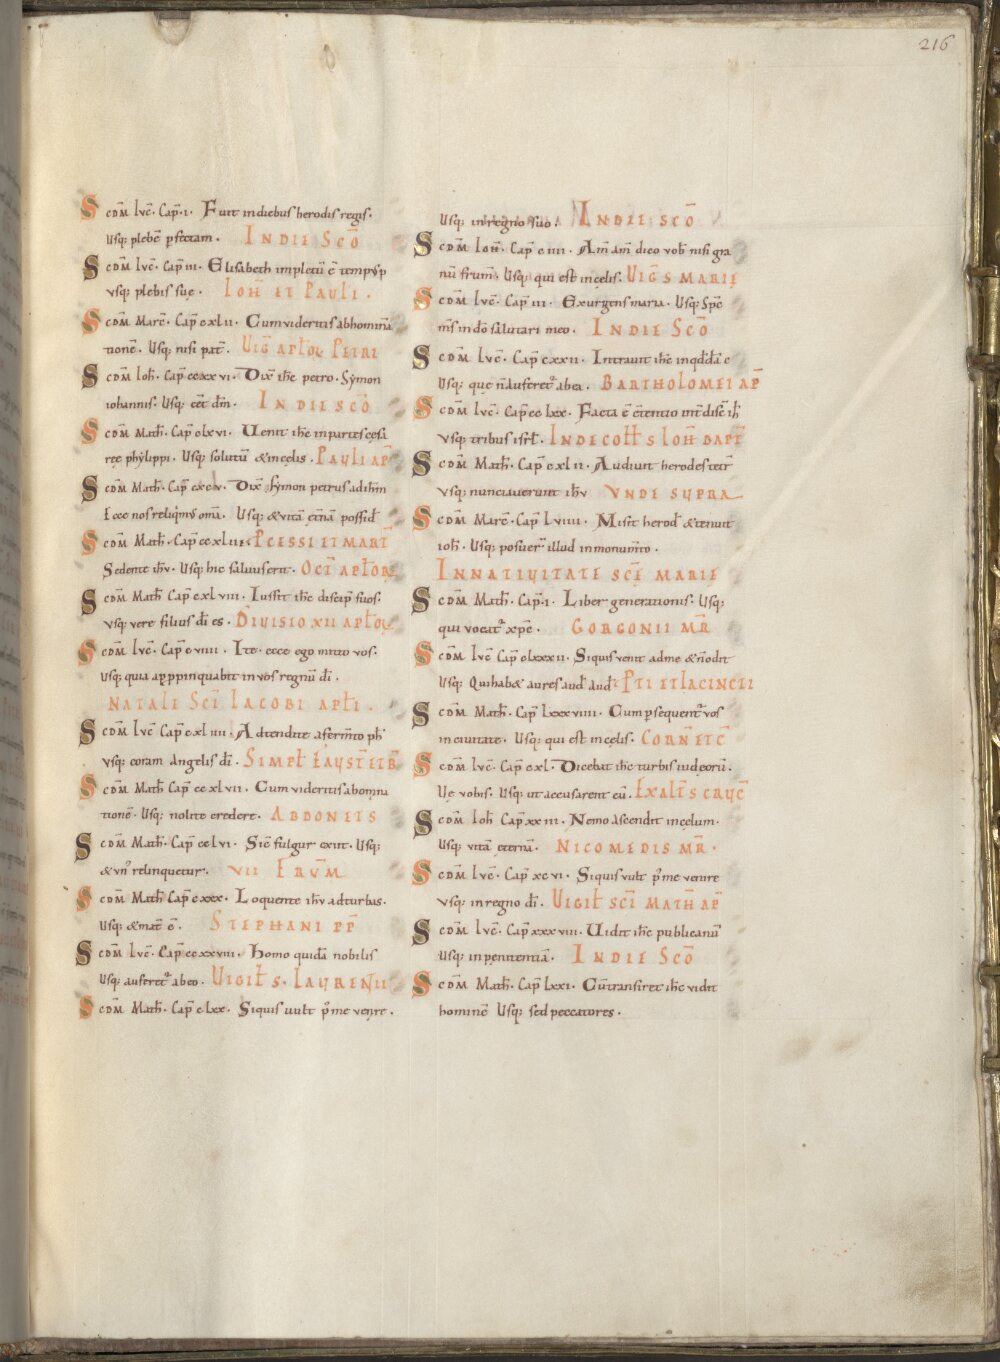 216
SCDM̄ luc̄. Cap̄. i. Fuit in diebus herodis regis.
Usq; plebē pfectam. IN DIE SCŌ
SCDM̄ luc̄. Cap̄ iii. Elisabeth impletū ē tempus p
vsq; plebis suę. IOH̄ ET PAULI.
SCDM̄ Marc̄. Cap̄ cxlii. Cum videritis abhomina
tionē. Usq; nisi pat̄. UIḠ APL̄OR̨ PETRI
SCDM̄ Ioh̄. Cap̄ ccxxvi. Dix̄ ih̄c petro. Symon
iohannis. Usq; cēt dm̄. IN DIE SCŌ
SCDM̄ Math̄. Cap̄ clxvi. Uenit ih̄c in partes cęsa
reę phylippi. Usq; solutū & in cęlis. PAULI AP̄
SCDM̄ Math̄. Cap̄ cxcv. Dix̄ symon petrus ad ih̄m
Ecce nos reliqim̄ omā. Usq; & vitā etn̄ā possid̄
SCDM̄ Math̄. Cap̄ ccxlii. PCESSI ET MART̄
Sedente ih̄u. Usq; hic saluus erit. OCT̄ APL̄OR̨
SCDM̄ Math̄ Cap̄ cxlviii. Iussit ih̄c discip̄ suos.
vsq; vere filius dī es. DIUISIO XII APL̄OR̨
SCDM̄ luc̄. Cap̄ cviiii. Ite. ecce ego mitto vos.
Usq; quia appinquabit in vos regnū dī.
NATALE SCĪ IACOBI APL̄I.
SCDM̄ luc̄ Cap̄ cxliiii. Adtendite a ferm̄to ph̄
vsq; coram angelis dī. SIMPL̄ FAUST̄ ET B̄
SCDM̄ Math̄ Cap̄ ccxlvii. Cum videritis abomina
tionē. Usq; nolite credere. ABDON ET S
SCDM̄ Math̄. Cap̄ cclvi. Sic̄ fulgur exiit. Usq;
& vn' relinquetur. VII FRUM̄
SCDM̄ Math̄ Cap̄ cxxx. Loquente ih̄u ad turbas.
Usq; & mat̄ ē. STEPHANI PP̄
SCDM̄ luc̄. Cap̄ ccxxviii. Homo quidā nobilis
Usq; auferet' ab eo. UIGIL̄ S. LAURENTII
SCDM̄ Math̄. Cap̄ clxx. Siquis uult p' me venire.
Usq; in regno suo. IN DIE SCŌ
SCDM̄ Ioh̄. Cap̄ ciiii. Am̄ am̄ dico vob̄ nisi gra
nū frum̄. Usq; qui est in cęlis. UIḠ S MARIE
SCDM̄ luc̄. Cap̄ iii. Exurgens maria. Usq; Sp̄c
m̄s in dō salutari meo. IN DIE SCŌ
SCDM̄ luc̄. Cap̄ cxxii. Intrauit ih̄c in qddā c
Usq; que n̄ auferet' ab ea. BARTHOLOMEI AP̄
SCDM̄ luc̄. Cap̄ cclxx. Facta ē c̄tentio int̄ disc̄ ih̄
vsq; tribus isrl̄. IN DECOLL̄ S IOH̄ BAPT̄
SCDM̄ Math̄. Cap̄ cxlii. Audiuit herodes tetr̄
vsq; nunciauerunt ih̄u UNDE SUPRA
SCDM̄ Marc̄. Cap̄ lviiii. Misit herod̄ & tenuit
ioh̄. Usq; posuer̄ illud in monumt̄o.
IN NATIUITATE SCE MARIE
SCDM̄ Math̄. Cap̄. i. Liber generationis. Usq;
qui vocat' xp̄c. GORGONII MR̄
SCDM̄ luc̄ Cap̄ clxxxii. Siquis venit ad me & n̄ odit
Usq; Qui hab& aures aud̄ aud̄. PTI ET IACINCTI
SCDM̄ Math̄. Cap̄ lxxxviiii. Cum psequent' vos
in ciuitate. Usq; qui est in cęlis. CORN̄ ET C̄
SCDM̄ luc̄. Cap̄ cxl. Dicebat ih̄c turbis iudęorū.
Ue vobis. Usq; ut accusarent eū. EXALT̄ S CRUC̄
SCDM̄ Ioh̄ Cap̄ xxiii. Nemo ascendit in cęlum.
Usq; vitā ęternā. NICOMEDIS MR̄.
SCDM̄ luc̄. Cap̄ xcvi. Siquis vult p' me venire
vsq; in regno dī. UIGIL̄ SCĪ MATH AP̄
SCDM̄ luc̄. Cap̄ xxxviii. Uidit ih̄c publicanū
Usq; in penitentiā. IN DIE SCŌ
SCDM̄ Math̄. Cap̄ lxxi. Cū transiret ih̄c vidit
hominē Usq; sed peccatores.